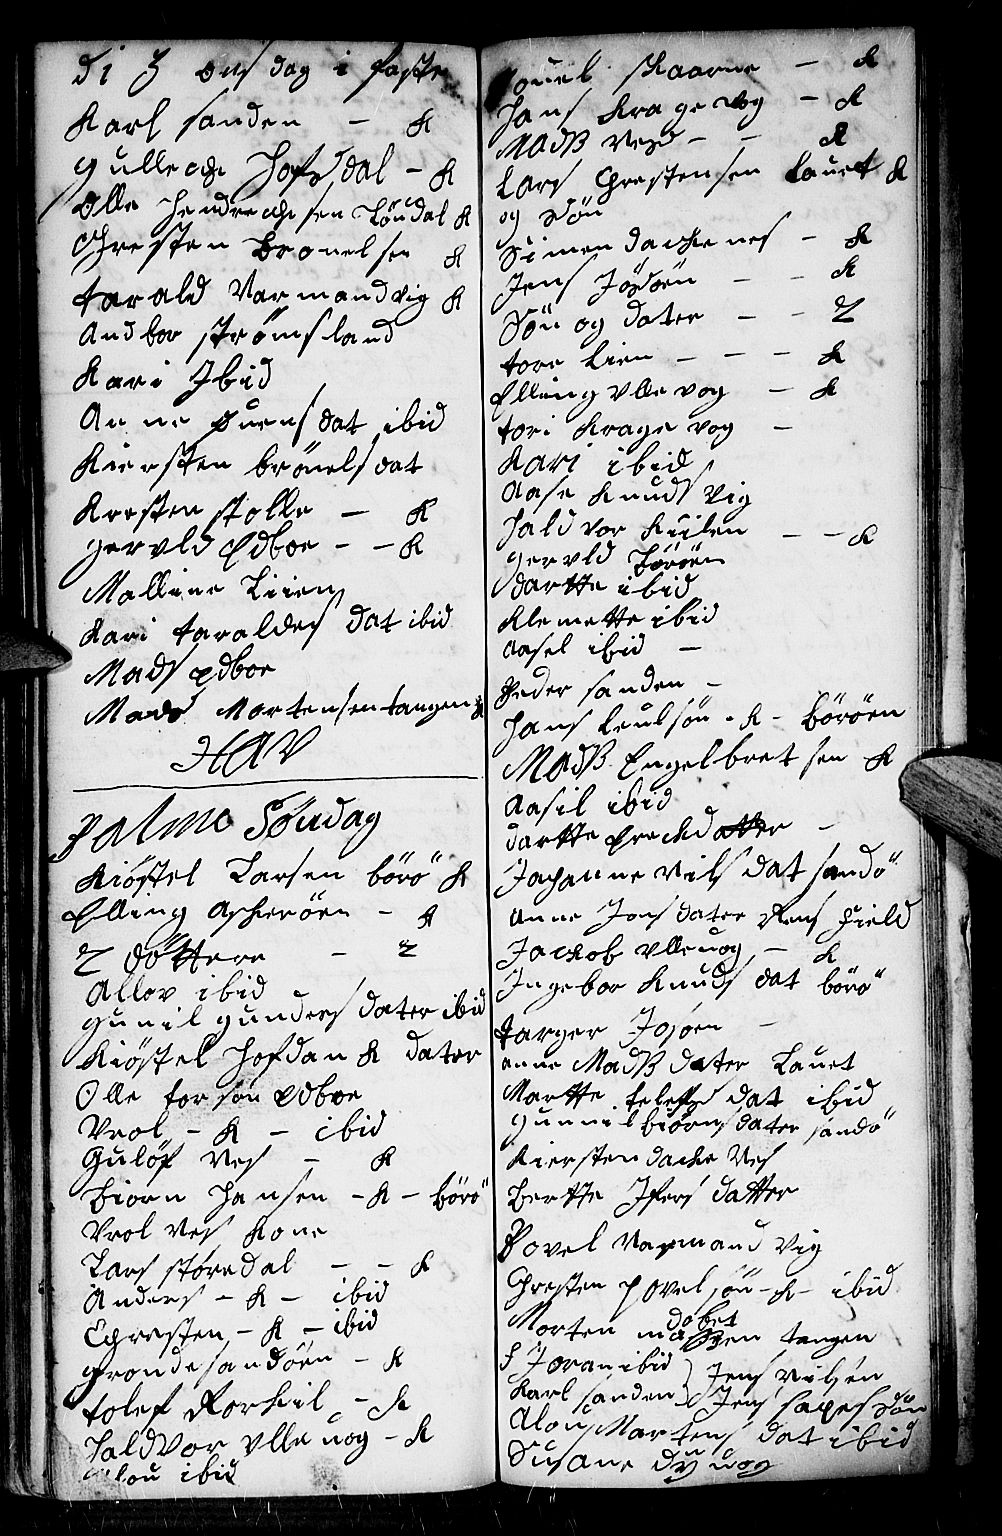 di 3 ons dag i faste
Karl sanden - K
gulleche Hofsdal - K
Olle Hendrechsen Löudal K
Chresten Bronelsen K
tarald Varmandvig K
Andbor strømsland
Kari Ibid
Anne ouensdat ibid
Kiersten brönelsdat
Kresten stolle - K
gervld Edboe - - K
Malline Liien
Kari taraldes dat ibid
Mads Edboe
Mads Mortensen tangen K
HAV
Palme Söndag
Kiöstel Larsen börö K
Elling Askeröen - K
2 döttere - 2
Allov ibid
gunil gunders dater ibid
Kiöstel Hofdan K dater
Olle for søn Edboe
Vrol - K - ibid
Gulöf Ves - K
Biorn Hansen - K - börö
Vrol Ves Kone
Lars störedal - - K
Anders - K - ibid
Chresten - K - ibid
gronde sandöen - K
tolef Rorkil - K
Haldvor Vlleuog - K
Alou ibid
Pouel skaarne - K
Hans Kragevog - K
Madß Vesd - - K
Lars Chrestensen Lauet K
og sön
Simen dackenes - K
Jens Josöen - - K
Sön og dater - - 2
tore Lien - - - K
Elling Vllevog - K
tori Kragevog -
Kari ibid
Aase Knuds Vig
Haldvor Kiilen - - K
gervld Böröen
dartte ibid
Klemette ibid
Aasel ibid -
Peder sanden -
Hans Leulsön - K - böröen
Madß Engelbretsen K
Aasil ibid
dartte Erechdatter -
Johanne Nils dat sandö
Anne Jons dater Rens Field
Jackob Vlleuog - K
Ingebor Knuds dat börö
targer Josöen -
anne Madß dater Lauet
Martte telefs dat ibid
gunnil biörns dater sandö
Kiersten dacke Ves
Bertte Ifers datter
Povel Varmand Vig
Chresten povel sön - K - ibid
döbet
Morten madßen tangen
S Joran ibid } Jens Nilsen
Karl sanden } Jens Sapes sön
Alou Martens dat ibid
Susane dyuog